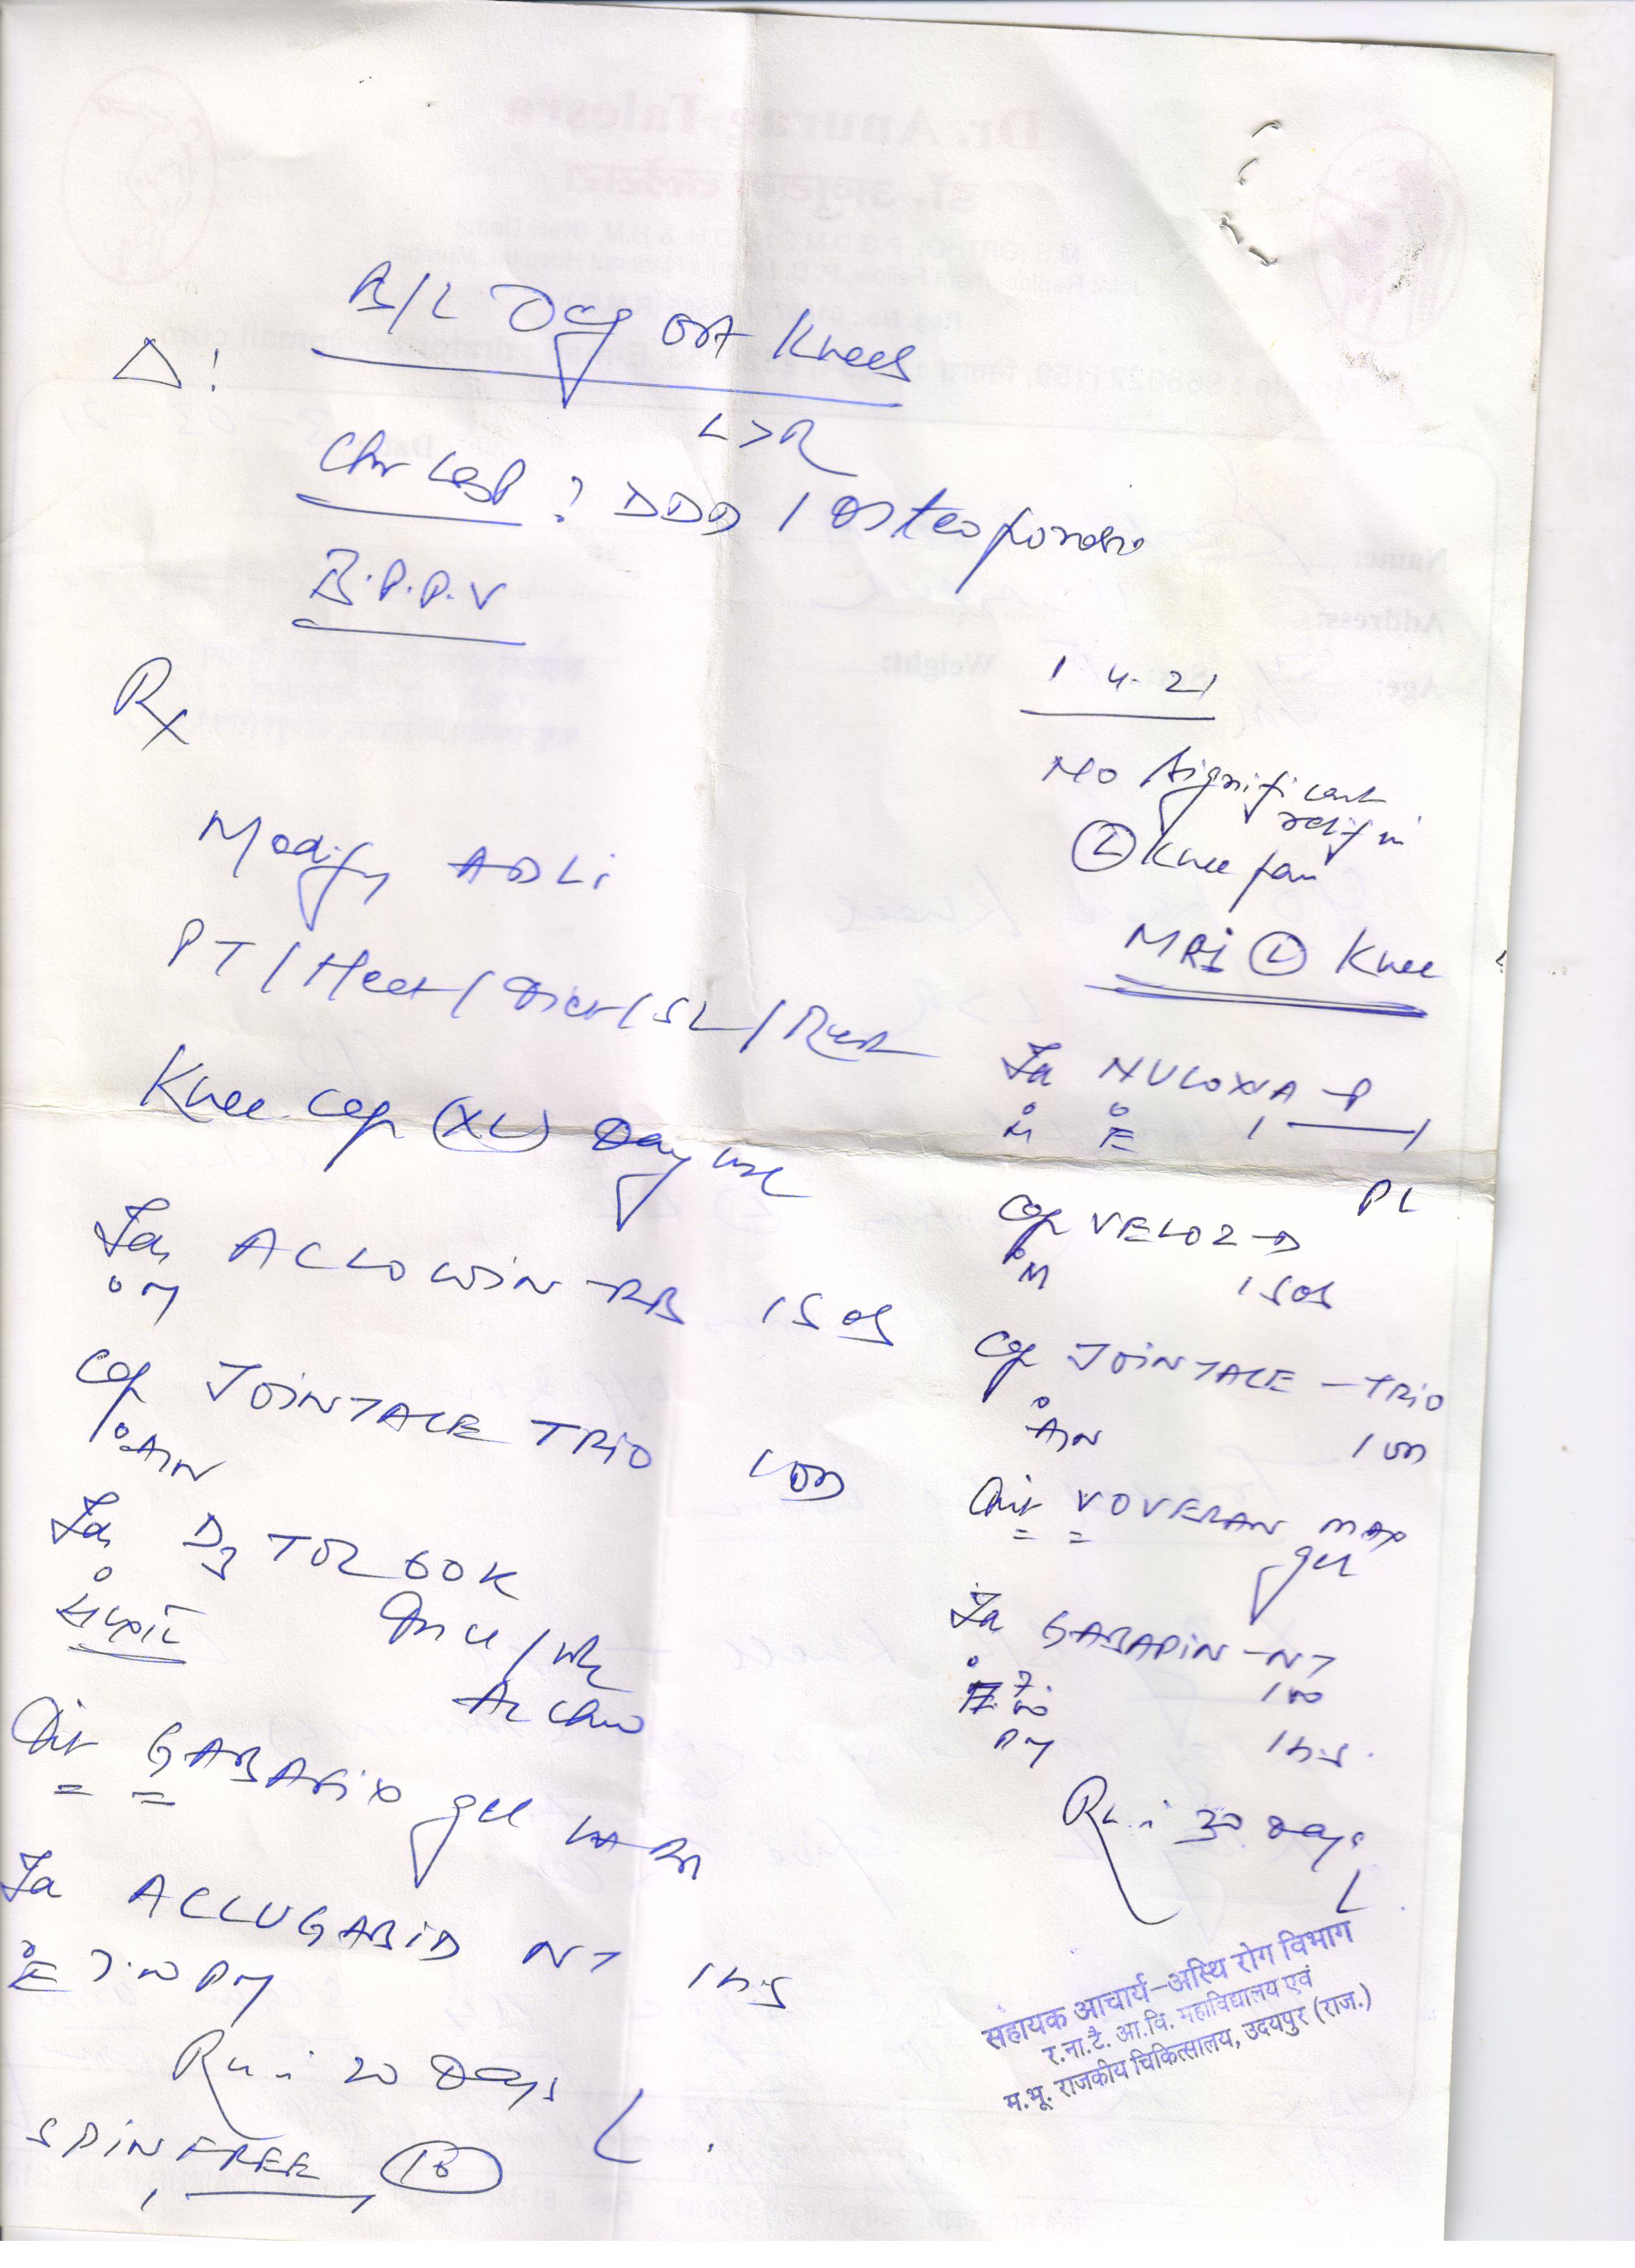 Δ!
B/L Deg OA Knees
L>R
Chr LBP ? DDD / Osteoporosis
B.P.P.V
Rx
Modify ADLs
PT / Heat / Diet / SL / Rest
Knee cap (XL) Day use
Tab ACLOWIN-RB 1 SOS
M
Cap JOINTACE TRIO 1 OD
AN
Tab D3 TOR 60K
Once / wk
Oint GABAFIX gel
Tab ACCUGABID NT 1 hs
E 7.00 PM
20 Days
SPINFREE 16
1 4.21
No significant
relief in
(L) Knee pain
MRI (L) Knee
Tab NULOXIA-P
M E 1 — 1
PL
Cap VELOZ-D
M 1 SOS
Cap JOINTACE-TRIO
AN 1 OD
Oint VOVERAN MAX
gel
Tab GABAPIN-NT
7.00 100
PM 1 hs.
30 Days
सहायक आचार्य-अस्थि रोग विभाग
र.ना.टै. आ.वि. महाविद्यालय एवं
म.भू. राजकीय चिकित्सालय, उदयपुर (राज.)